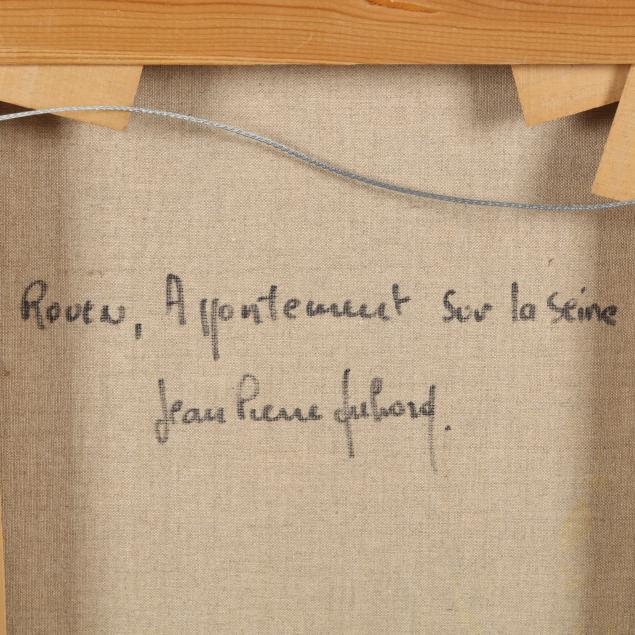 Rouen, Appontement sur la Seine
Jean Pierre Dubord.